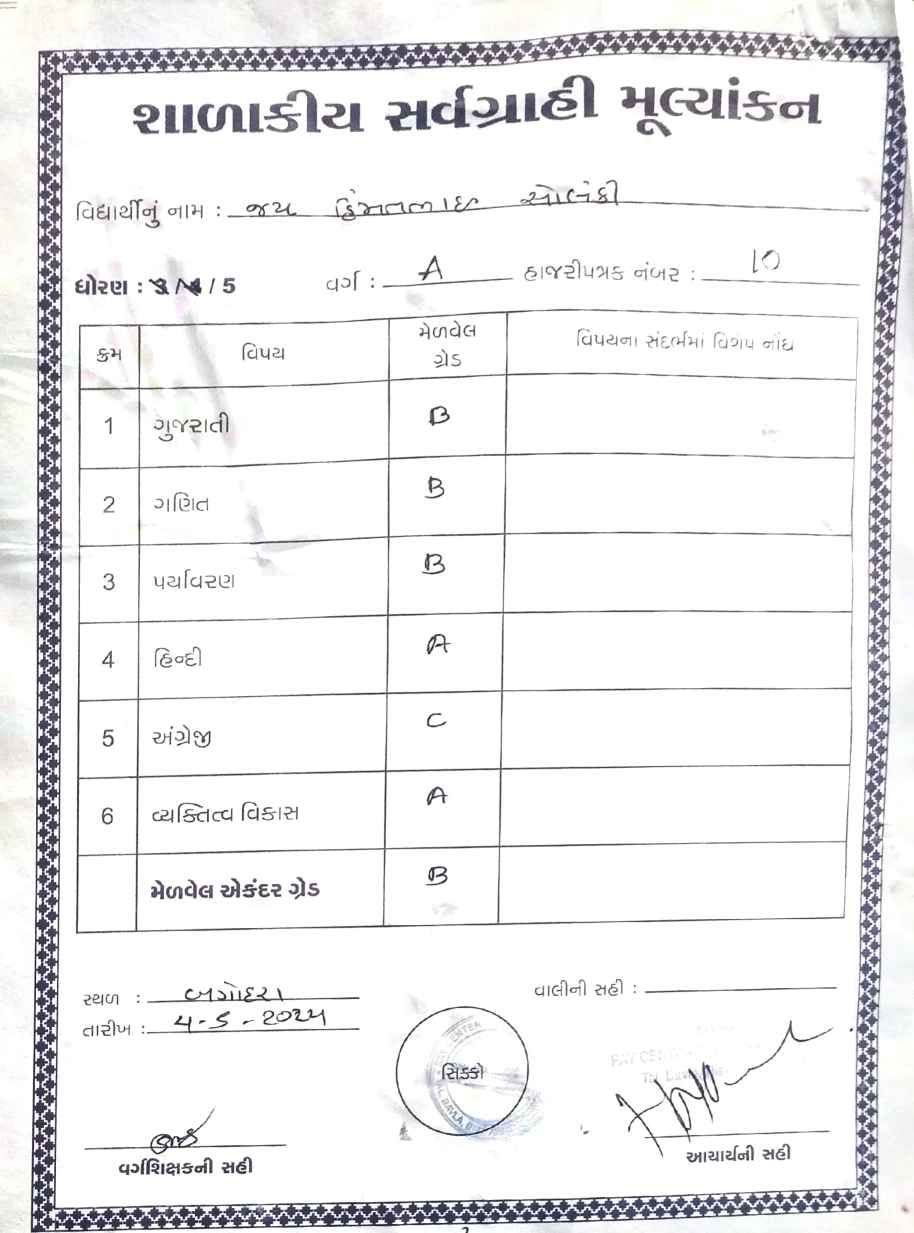 શાળાકીય સર્વગ્રાહી મૂલ્યાંકન
વિદ્યાર્થીનું નામ : જય હિંમતભાઈ સોલંકી
ધોરણ : 3 / 4 / 5 વર્ગ : A હાજરીપત્રક નંબર : 10
ક્રમ વિષય મેળવેલ ગ્રેડ વિષયના સંદર્ભમાં વિશેષ નોંધ
1 ગુજરાતી B
2 ગણિત B
3 પર્યાવરણ B
4 હિન્દી A
5 અંગ્રેજી C
6 વ્યક્તિત્વ વિકાસ A
મેળવેલ એકંદર ગ્રેડ B
સ્થળ : બગોદરા વાલીની સહી :
તારીખ : 4-5-2024
સિક્કો
વર્ગશિક્ષકની સહી આચાર્યની સહી